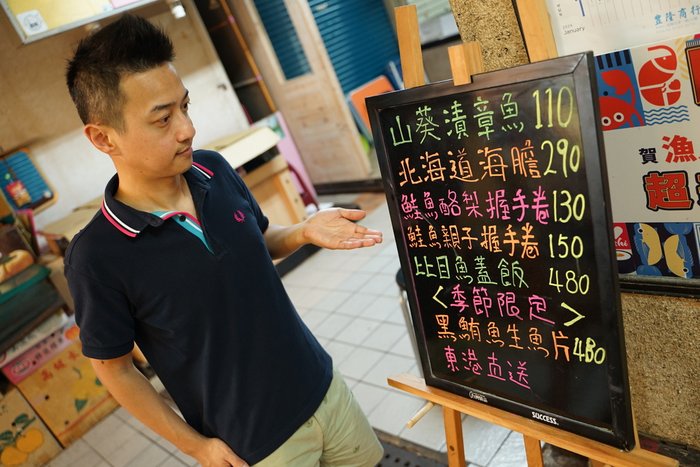 山葵漬章魚 110
北海道海膽 290
鮭魚酪梨握手卷 130
鮭魚親子握手卷 150
比目魚蓋飯 480
<季節限定>
黑鮪魚生魚片 480
東港直送
SUCCESS.
January
豊隆商行
賀漁
超